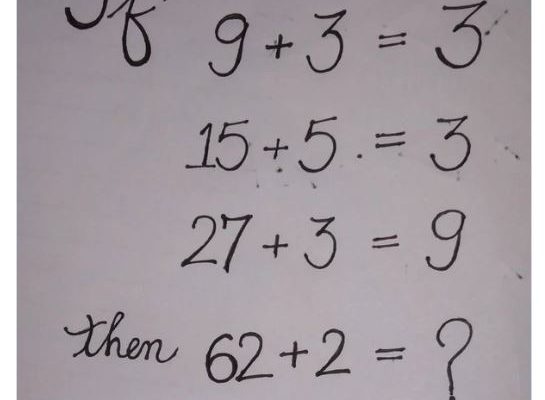 If 9 + 3 = 3
15 + 5 . = 3
27 + 3 = 9
then 62 + 2 = ?